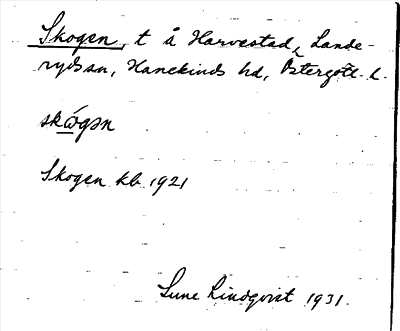 Skogen, t å Harvestad, Lande-
rydssn, Hanekinds hd, Östergötl. l.
skógən
Skogen kb 1921
Sune Lindqvist 1931.